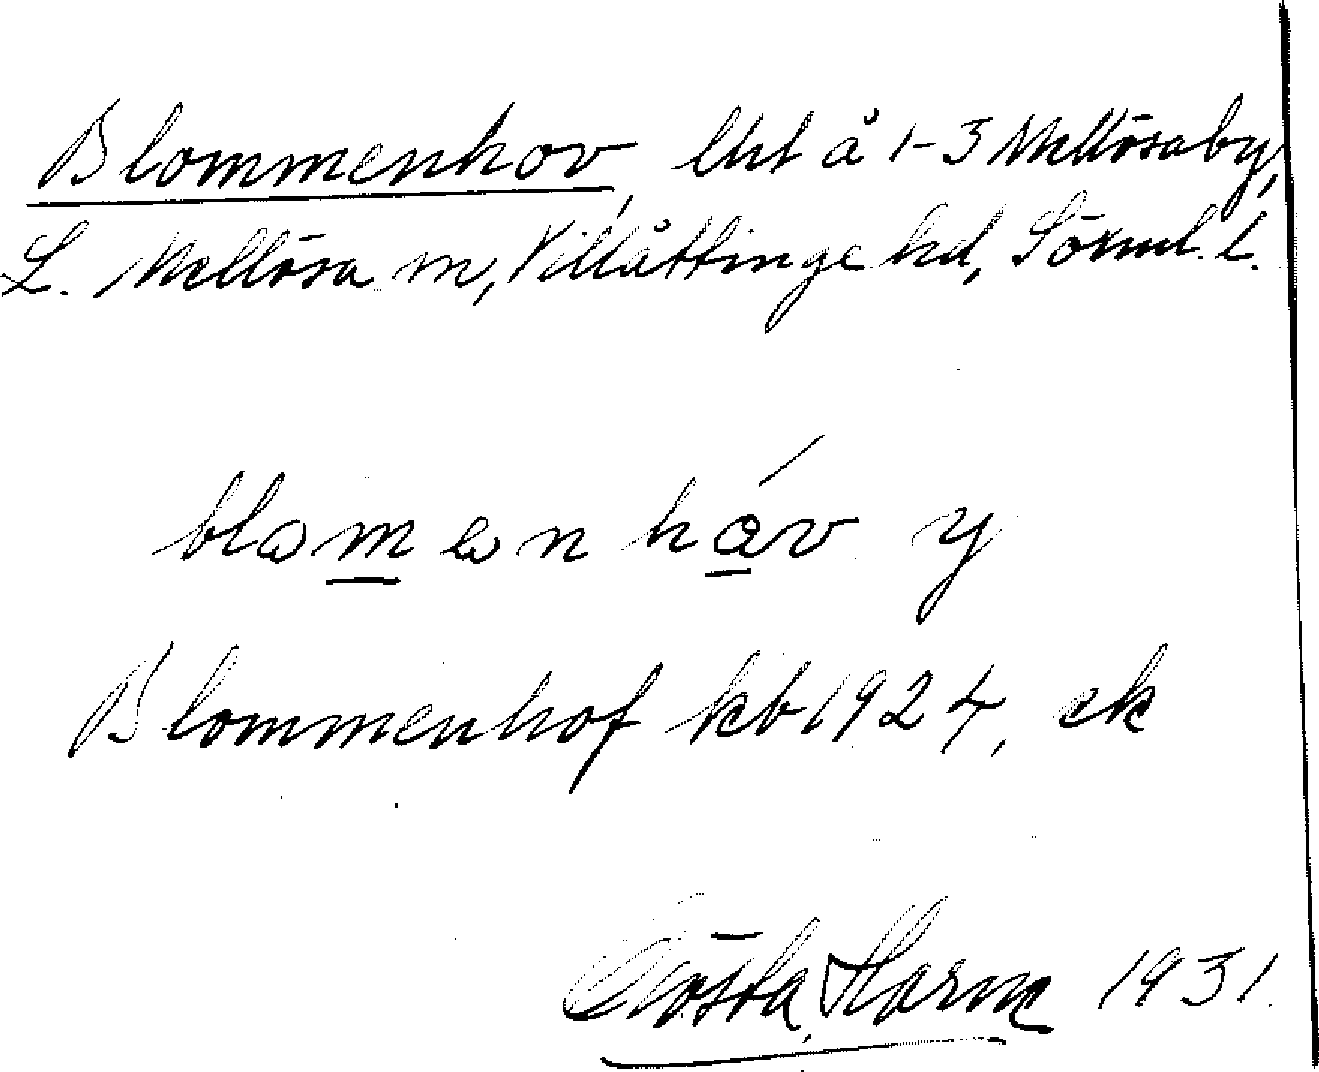 Blommenhov, lht å 1-3 Mellösa by,
L. Mellösa sn, Villåttinge hd, Sörml. l.
blomən håv y
Blommenhof kb 1924, ek
Gösta Harm 1931.